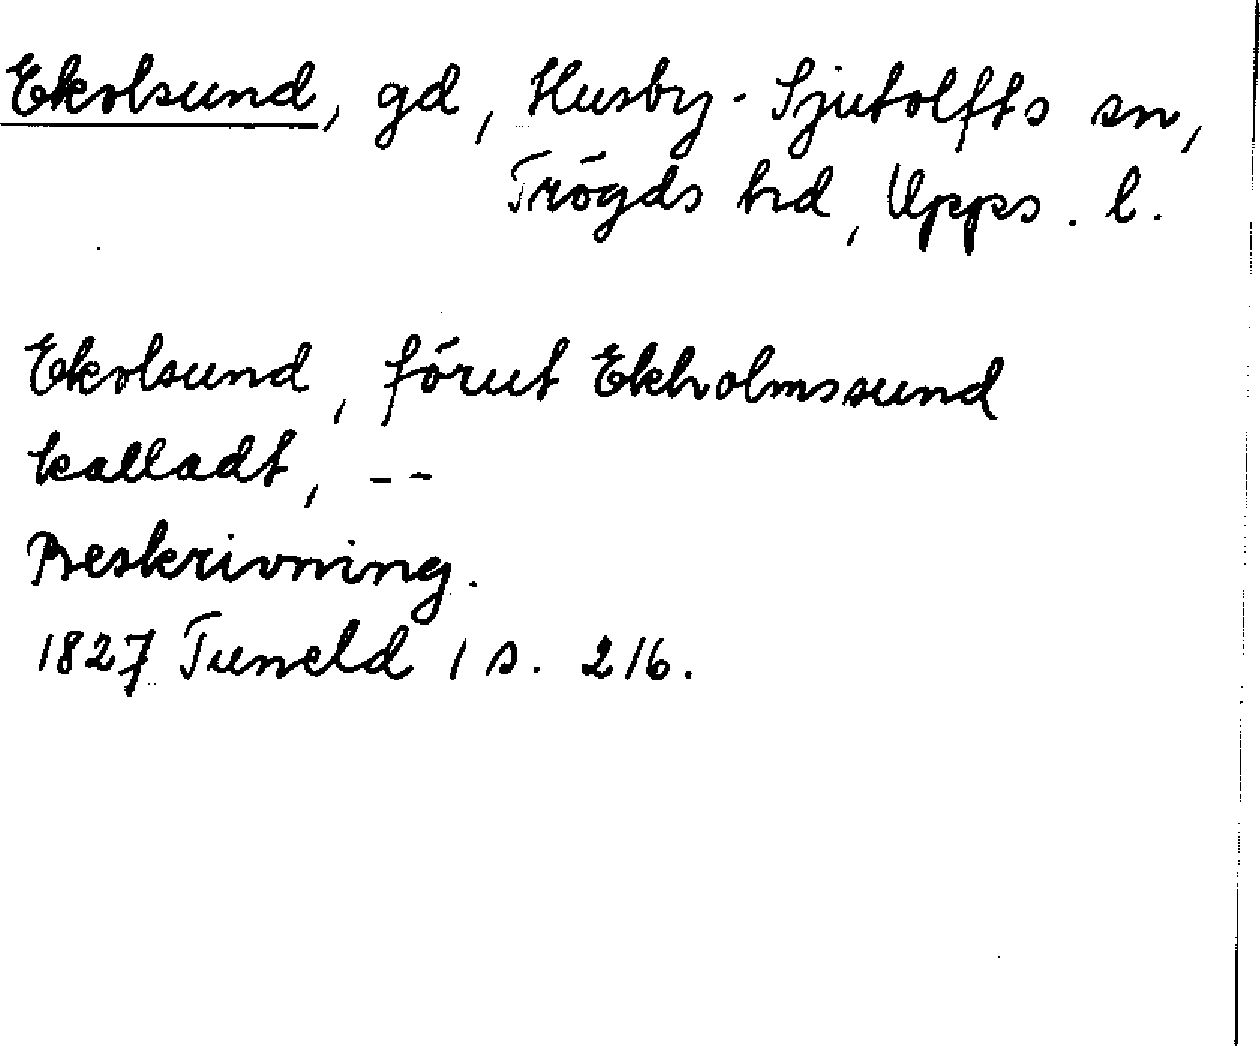 Ekolsund, gd, Husby-Sjutolfts sn,
Trögds hd, Upps. l.
Ekolsund, förut Ekholmssund
kalladt, --
Beskrivning.
1827 Tuneld 1 s. 216.